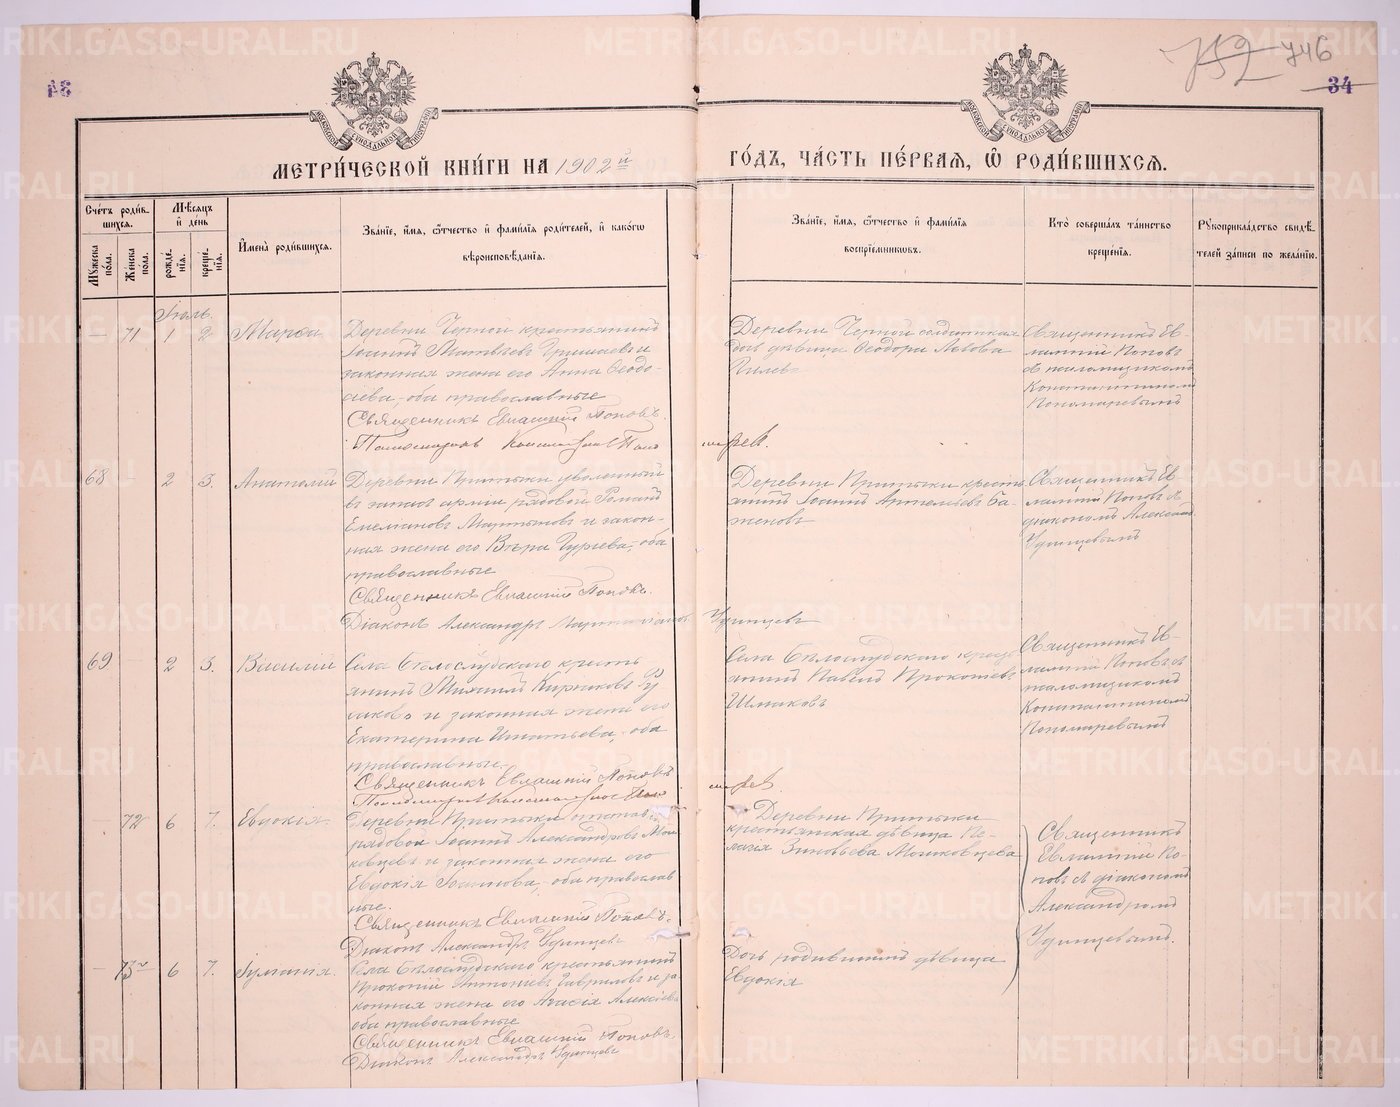 34
752 746
34
МЕТРИ́ЧЕСКОЙ КНИ́ГИ НА 1902й
ГО́ДЪ, ЧА́СТЬ ПЕ́РВАЯ, Ѿ РОДИ́ВШИХСѦ.
Сче́тъ роди́в-
шихся.
Мѣ́сяцъ
и҆ де́нь
Мꙋ́жеска
по́ла.
Же́нска
по́ла.
рожде́-
нїѧ.
креще́-
нїѧ.
И҆мена̀ роди́вшихся.
Зва́нїе, и҆́мѧ, ѻ҆́тчество и҆ фами́лїѧ роди́телей, и҆ како́гѡ
вѣроисповѣ́данїѧ.
Зва́нїе, и҆́мѧ, ѻ҆́тчество и҆ фами́лїѧ
воспрїе́мникѡвъ.
Кто̀ соверша́лъ та́инство
креще́нїѧ.
Рꙋкоприкла́дство свидѣ́-
телей за́писи по жела́нїю.
Іюль.
— 71 1 2 Марѳа
Деревни Черной крестьянинъ
Іоаннъ Матвѣевъ Гришаевъ и
законная жена его Анна Ѳеодо-
сіева, оба православные
Священникъ Евлампій Поповъ.
Псаломщикъ Константинъ Поно
Деревни Черной солдатская
дочь дѣвица Ѳеодора Львова
Гилева
Священникъ Ев-
лампій Поповъ
съ псаломщикомъ
Константиномъ
Пономаревымъ
маревъ.
68 — 2 3. Анатолій
Деревни Притыки уволенный
въ запасъ арміи рядовой Романъ
Емеліановъ Мартьяновъ и закон-
ная жена его Вѣра Гурьева, оба
православные
Священникъ Евлампій Поповъ.
Діаконъ Александръ
Деревни Притыки кресть-
янинъ Іоаннъ Артемьевъ Ба-
женовъ
Священникъ Ев-
лампій Поповъ съ
діакономъ Алексан.
Удинцевымъ
Удинцевъ
69 — 2 3. Василій
Села Бѣлослудскаго кресть
янинъ Михаилъ Кириковъ Ру-
саковъ и законная жена его
Екатерина Игнатьева, оба
православные.
Священникъ Евлампій Поповъ
Псаломщикъ Константинъ Поно
Села Бѣлослудскаго крест
янинъ Павелъ Прокопьевъ
Шмаковъ
Священникъ Ев-
лампій Поповъ съ
псаломщикомъ
Константиномъ
Пономаревымъ
маревъ
— 72 6 7. Евдокія.
Деревни Притыки отставн.
рядовой Іоаннъ Александровъ Мош
ковцевъ и законная жена его
Евдокія Іоаннова, оба православ
ные.
Священникъ Евлампій Поповъ.
Діаконъ Александръ Удинцевъ
Деревни Притыки
крестьянская дѣвица Пе-
лагія Зиновьева Мошковцева
Священникъ
Евлампій По-
повъ съ діакономъ
Александромъ
Удинцевымъ.
— 73 6 7. Іуліанія.
Села Бѣлослудскаго крестьянинъ
Прокопій Антоніевъ Гавриловъ и за
конная жена его Агафія Алексіева
оба православные
Священникъ Евлампій Поповъ.
Діаконъ Александръ Удинцевъ
Дочь родившихъ дѣвица
Евдокія